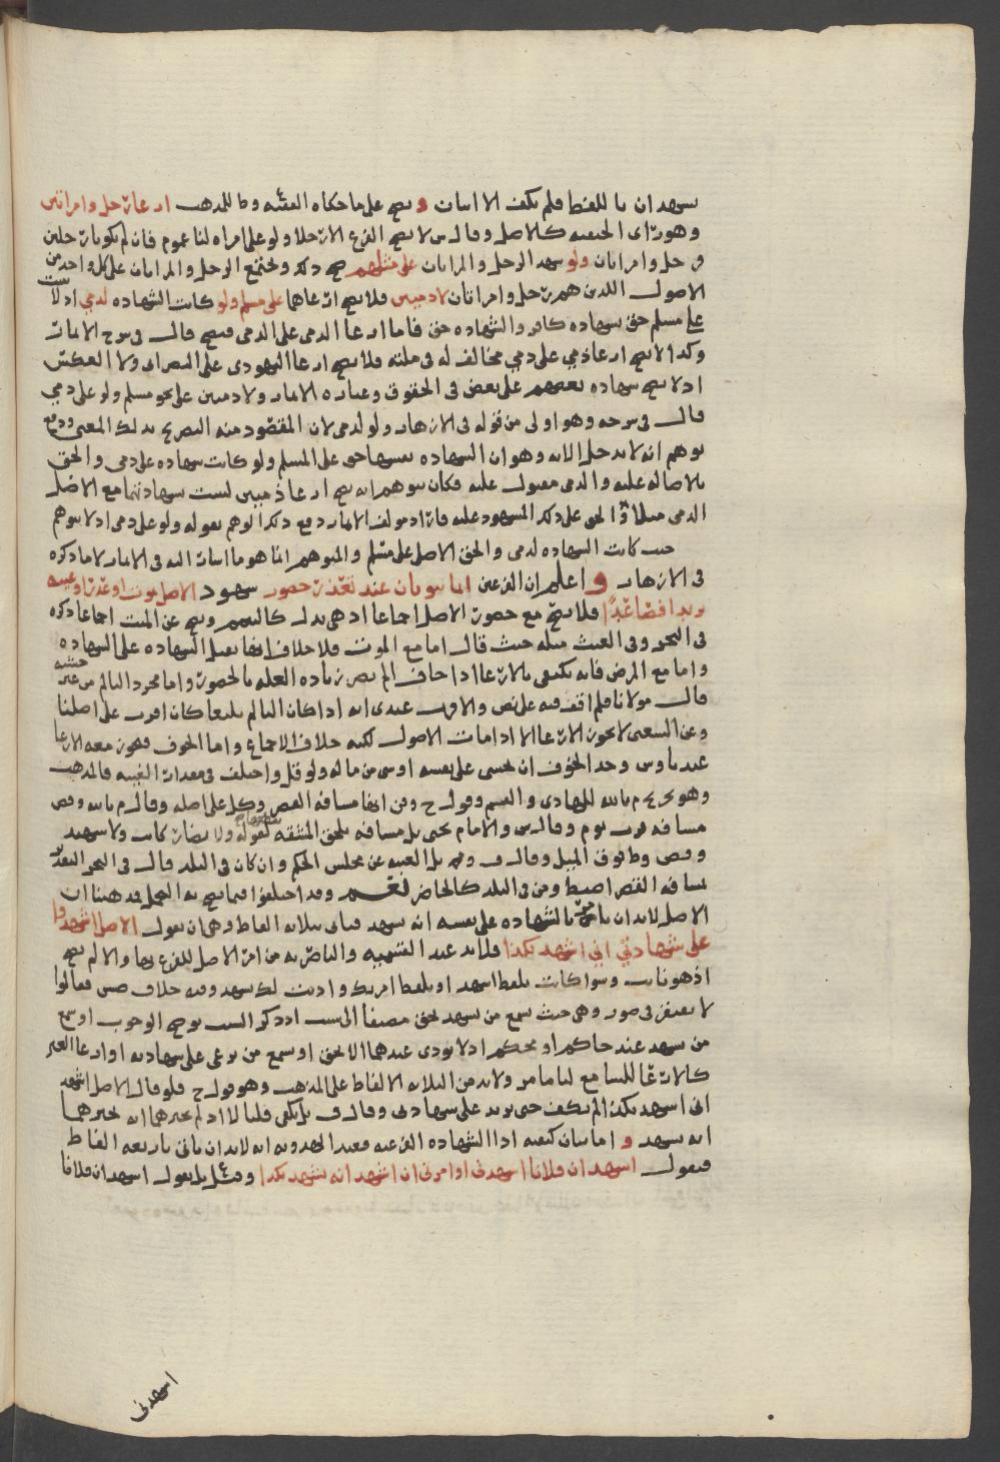 يشهدان باللفظ فلم يكف الاثبات و يصح على ما حكاه الفقيه وط للمذهب ارعا رجل وامراتين
وهو راي الحنفيه كالاصل وقال س لا يصح الفرع الا رجلا ولو على امراه لنا عموم فان لم يكونا رجلين
فرجل وامراتان ولو شهد الرجل والمراتان على مثلهم صح ذلك ويجتمع الرجل والمراتان على كل واحد من
الاصول اللذين هم رجل وامراتان لا ذميين فلا يصح ارعاهما على مسلم ولو كانت الشهاده لذمي اذ ليست
على مسلم حق شهاده كافر والشهاده حق فاما ارعا الذمي على الذمي فيصح قال في شرح الاثمار
وكذا لا يصح ارعا ذمي على ذمي مخالف له في ملته فلا يصح ارعا اليهودي على النصراني ولا العكس
اذ لا يصح شهاده بعضهم على بعض في الحقوق وعباره الاثمار ولا ذميين على نحو مسلم ولو على ذمي
قال في شرحه وهو اولى من قوله في الازهار ولو لذمي لان المقصود منه التصريح بذلك المعنى ودفع
توهم انه لا يدخل الا به وهو ان الشهاده نفسها حق على المسلم ولو كانت شهاده على ذمي والحق
بالاصاله عليه والذمي مقبول عليه فكان يتوهم انه يصح ارعا ذميين ليست شهادتهما مع الاصل
الذمي مثلا والحق على ذلك المشهود عليه فاراد مولف الاثمار دفع ذلك الوهم بقوله ولو على ذمي اذ لا يتوهم
حيث كانت الشهاده لذمي والحق الاصل على مسلم والمتوهم انما هو ما اشار اليه في الاثمار لا ما ذكره
في الازهار و اعلم ان الفرعين انما ينوبان عند تعذر حضور شهود الاصل بموت او عذر او غيبه
بريدا فصاعدا فلا يصح مع حضور الاصل اجماعا اذ هي بدل كالتيمم ويصح عن الميت اجماعا ذكره
في البحر وفي الغيث مثله حيث قال اما مع الموت فلا خلاف انها تقبل الشهاده على الشهاده
واما مع المرض فانه يكتفى بالارعا اذا خاف الم يضر زياده العله بالحضور واما مجرد التالم من غير خشيه
قال مولانا فلم اقف فيه على نص والاقرب عندي انه اذا كان التالم بليغا كان اقرب على اصلنا
وعن الشعبي لا يجوز الارعا الا اذا مات الاصول لكنه خلاف الاجماع واما الخوف فيجوز معه الارعا
عندنا وس وحد الخوف ان يخشى على نفسه او شي من ماله ولو قل واختلف في مقدار الغيبه فالمذهب
وهو تخريج م بالله للهادي والقسم وقول ح وص انها مسافه القصر وكل على اصله وقال م بالله وفص
مسافه فوت يوم وقال س والامام يحيى بل مسافه يلحق المشقه لقوله تعالى ولا يضار كاتب ولا شهيد
وفص وط فوق الميل وقال ف ومحمد بل الغيبه عن مجلس الحكم وان كان في البلد قال في البحر التقدير
بمسافه القصر اضبط ومن في البلد كالحاضر نعم وقد اختلفوا فيما يصح به التحمل فمذهبنا ان
الاصل لابد ان يامر بالشهاده على نفسه انه يشهد فياتي بثلاثه الفاظ وهي ان يقول الاصل اشهدوا
على شهادتي اني اشهد بكذا فلابد عند القسميه والناصريه من امر الاصل للفرع بها والا لم يصح
اذ هو نائب وسوا كانت بلفظ اشهد او بلفظ امرتك واذنت لك تشهد وفيه خلاف صش فقالوا
لا يفتقر في صور وهي حيث سمع من يشهد بحق مضيفا الى سبب اذ ذكر السبب يوجب الوجوب او سمع
من يشهد عند حاكم او محكم اذ لا يودى عندهما الا بحق او سمع من يرعي على شهادته او ارعا الغير
كالارعا للسامع لنا ما مر ولا بد من الثلاثه الالفاظ على المذهب وهو قول ح فلو قال الاصل اشهد
اني اشهد بكذا لم يكف حتى يزيد على شهادتي وقال ف بل يكفي قلنا لا اذ لم يخبرهما انه يخبرهما
انه يشهد و اما بيان كيفيه ادا الشهاده الفرعيه فعند الهدويه انه لابد ان ياتي باربعه الفاظ
فيقول اشهد ان فلانا اشهدني او امرني ان اشهد انه يشهد بكذا وقيل بل يقول اشهد ان فلانا
اشهدني